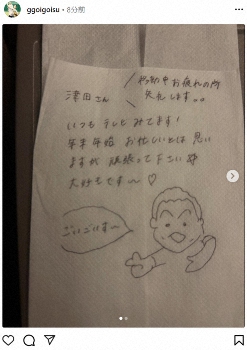 ggoigoisu・8分前
移動中お疲れの所
失礼します。。
津田さん
いつもテレビみてます!
年末年始 お忙しいとは思い
ますが 頑張って下さい
大好きです〜♡
ごいごいす〜